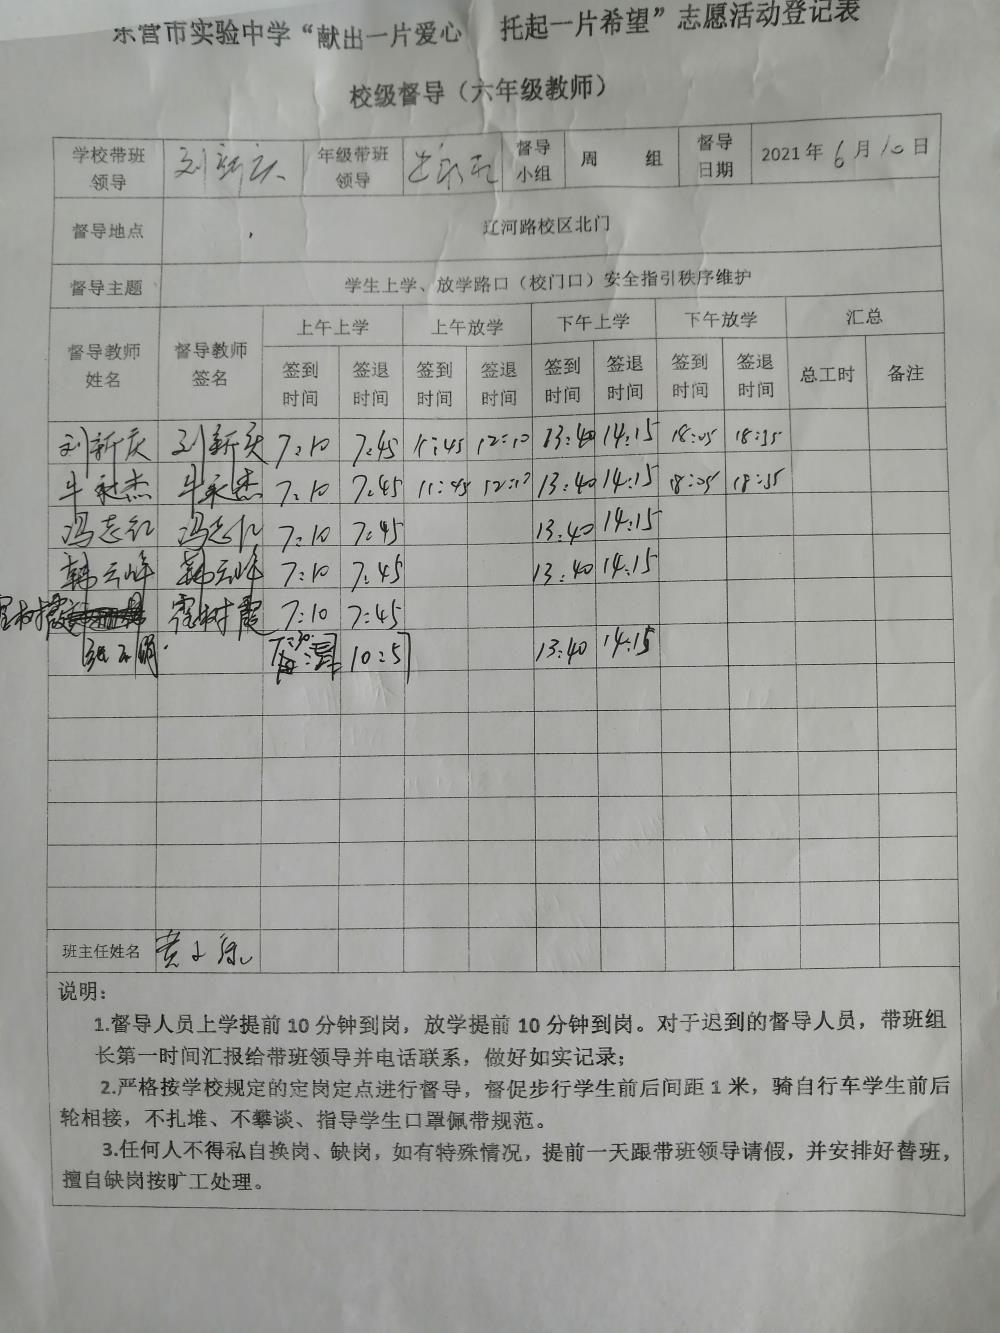 东营市实验中学“献出一片爱心 托起一片希望”志愿活动登记表
校级督导（六年级教师）
学校带班领导 刘新庆 年级带班领导 督导小组 周 组 督导日期 2021年6月10日
督导地点 辽河路校区北门
督导主题 学生上学、放学路口（校门口）安全指引秩序维护
督导教师姓名 督导教师签名 上午上学 上午放学 下午上学 下午放学 汇总
签到时间 签退时间 签到时间 签退时间 签到时间 签退时间 签到时间 签退时间 总工时 备注
刘新庆 刘新庆 7:10 7:45 11:45 12:10 13:40 14:15 18:05 18:35
牛永杰 牛永杰 7:10 7:45 11:45 12:10 13:40 14:15 18:05 18:35
冯志红 冯志红 7:10 7:45 13:40 14:15
韩云峰 韩云峰 7:10 7:45 13:40 14:15
霍树霞 霍树霞 7:10 7:45
13:40 14:15
班主任姓名
说明：
1.督导人员上学提前10分钟到岗，放学提前10分钟到岗。对于迟到的督导人员，带班组
长第一时间汇报给带班领导并电话联系，做好如实记录；
2.严格按学校规定的定岗定点进行督导，督促步行学生前后间距1米，骑自行车学生前后
轮相接，不扎堆、不攀谈、指导学生口罩佩带规范。
3.任何人不得私自换岗、缺岗，如有特殊情况，提前一天跟带班领导请假，并安排好替班，
擅自缺岗按旷工处理。